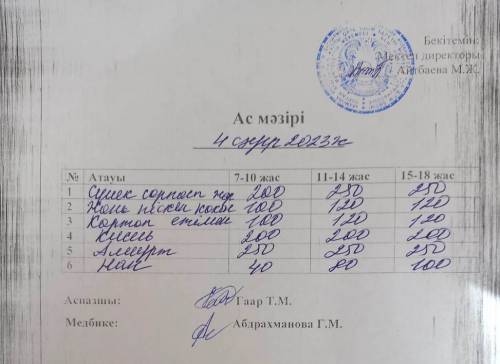 Бекітемін:
Мектеп директоры
Айтбаева М.Ж.
Ас мәзірі
2023ж
№ Атауы 7-10 жас 11-14 жас 15-18 жас
1 сорпасы 200 250 250
2 100 120 120
3 Картоп 100 120 120
4 Кисель 200 200 200
5 250 250 250
6 Нан 40 80 100
Аспазшы: Гаар Т.М.
Медбике: Абдрахманова Г.М.